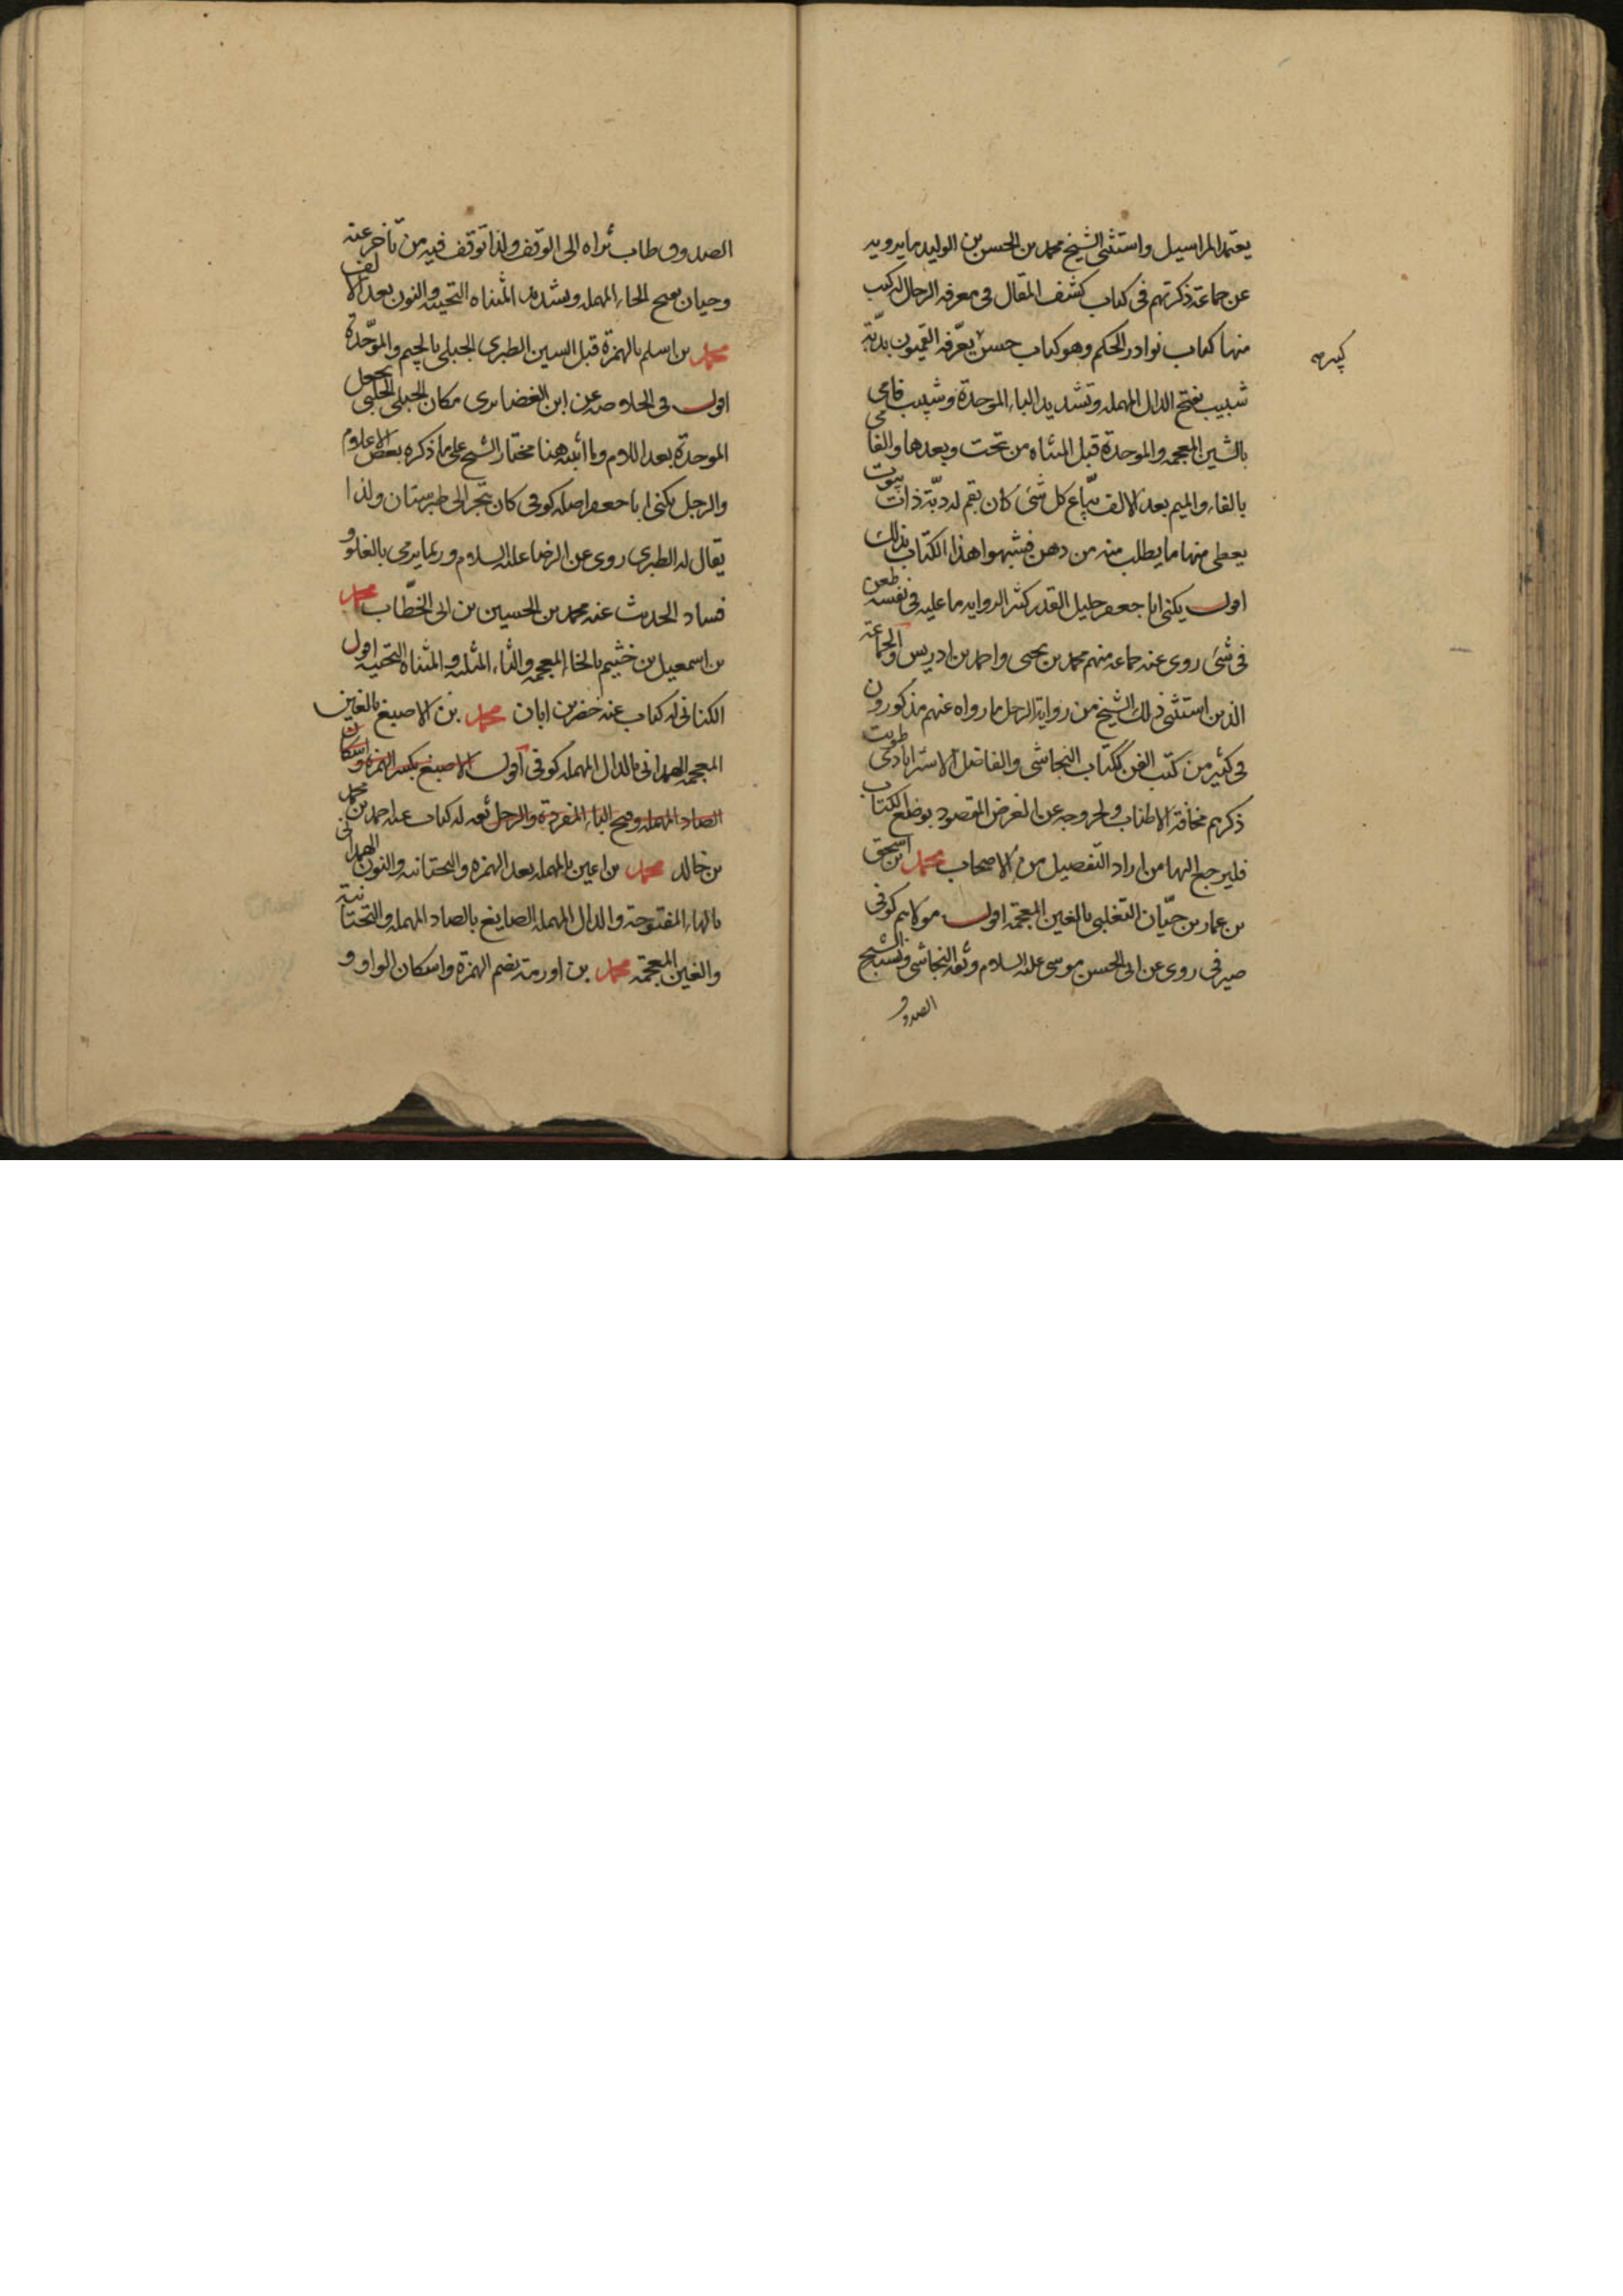 يعتمد المراسيل واستثنى الشيخ محمد بن الحسن بن الوليد ما يرويه
عن جماعة ذكرتهم في كتاب كشف المقال في معرفة الرجال له كتب
منها كتاب نوادر الحكم وهو كتاب حسن يعرّفه القميون بدبّة
شبيب بفتح الدال المهملة وتشديد الباء الموحدة وشبيب فامي
بالشين المعجمة والموحدة قبل المثناه من تحت وبعدها والفامي
بالفاء والميم بعد الالف بيّاع كل شئ كان بقم له دبّة ذات بيوت
يعطى منها ما يطلب منه من دهن فشبهوا هذا الكتاب بذلك
اقول يكنى ابا جعفر جليل القدر كثير الرواية ما عليه في نفسه طعن
في شئ روى عنه جماعة منهم محمد بن يحيى واحمد بن ادريس والجماعة
الذين استثنى ذلك الشيخ من رواية الرجل ما رواه عنهم مذكورون
في كثير من كتب الفن ككتاب النجاشي والفاضل الاسترابادي طويت
ذكرهم مخافة الاطناب ولخروجه عن الغرض المقصود بوضع الكتاب
فليرجع اليها من اراد التفصيل من الاصحاب محمد بن اسحق
بن عمار بن حيّان التغلبي بالغين المعجمة اقول مولاهم كوفي
صيرفي روى عن ابي الحسن موسى عليه السلام وثقه النجاشي ونسبه الشيخ
الصدوق
الصدوق طاب ثراه الى الوقف ولذا توقف فيه من تأخر عنه
وحيان بفتح الحاء المهملة وتشديد المثناه التحتية والنون بعد الالف
محمد بن اسلم بالهمزة قبل السين الطبري الجبلي بالجيم والموحّدة
اقول في الخلاصة عن ابن الغضائري مكان الجبلي الحلبي بجعل
الموحدة بعد اللام وما أثبته هنا مختار الشيخ على ما ذكره بعض الاعلام
والرجل يكنى ابا جعفر اصله كوفي كان يتجر الى طبرستان ولذا
يقال له الطبري روى عن الرضا عليه السلام وربما يرمى بالغلو و
فساد الحديث عنه محمد بن الحسين بن ابي الخطّاب محمد
بن اسمعيل بن خثيم بالخاء المعجمة والثاء المثلثة والمثناة التحتية اقول
الكناني له كتاب عنه خضر بن ابان محمد بن الاصبغ بالغين
المعجمة الهمداني بالدال المهملة كوفي اقول الاصبغ بكسر الهمزة واسكان
الصاد المهملة وفتح الباء المفردة والرجل ثقه له كتاب عنه احمد بن محمد
بن خالد محمد بن اعين بالمهملة بعد الهمزه والتحتانية والنون الهمداني
بالهاء المفتوحة والدال المهملة الصايغ بالصاد المهملة والتحتانية
والغين المعجمة محمد بن اورمة بضم الهمزة واسكان الواو و